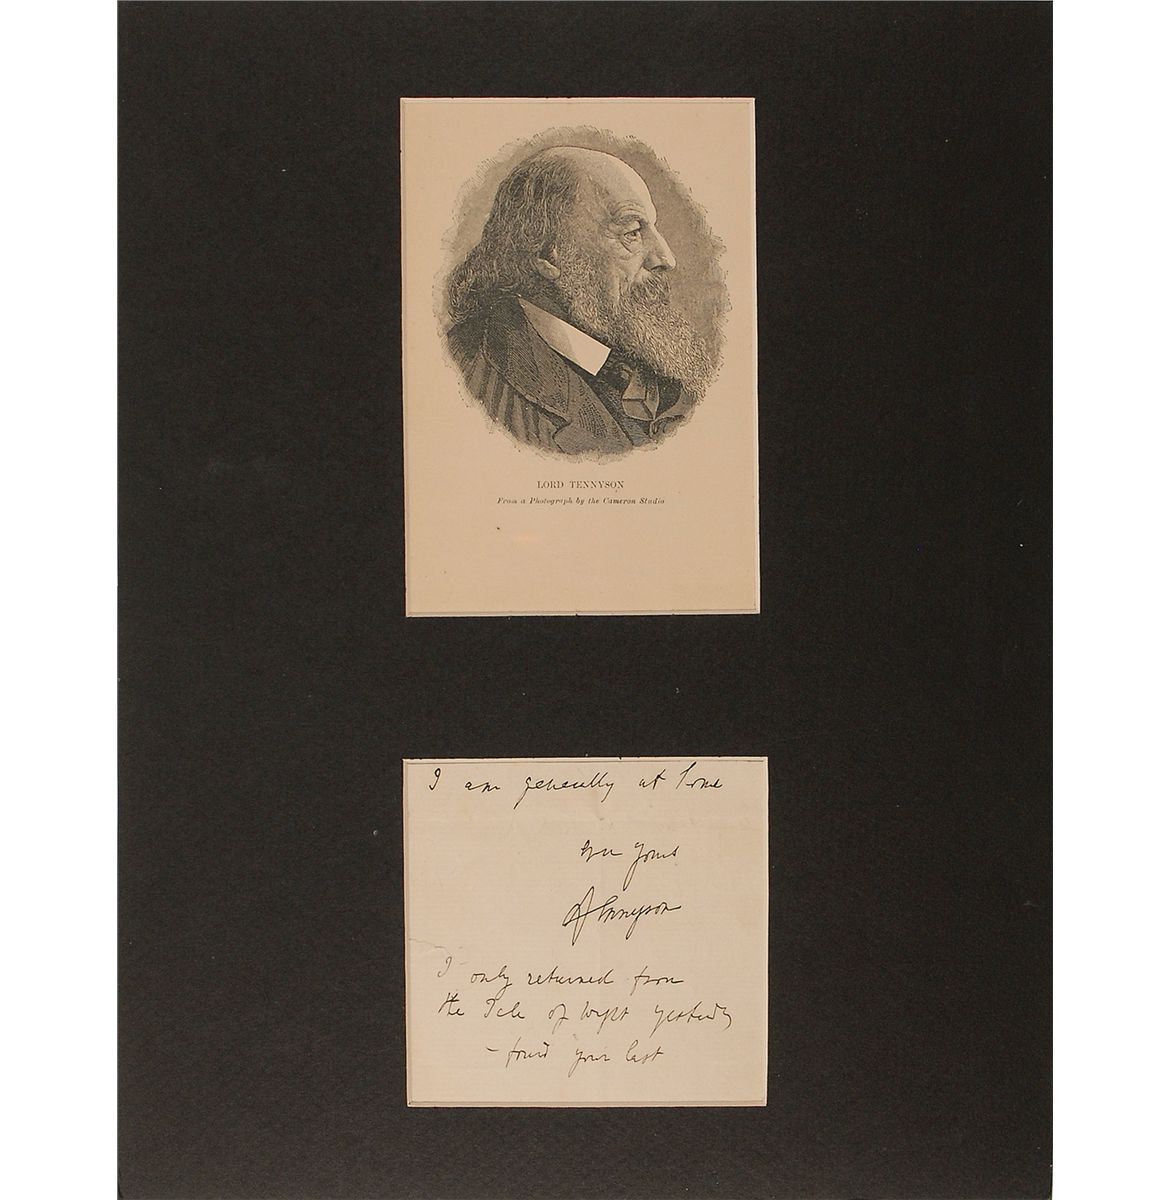 LORD TENNYSON
From a Photograph by the Cameron Studio
I am generally at home
yours
ATennyson
I only returned from
the Isle of Wight yesterday
– found your last